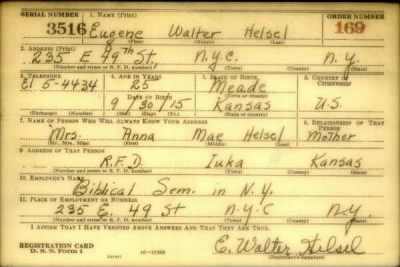 SERIAL NUMBER 1. NAME (Print) ORDER NUMBER
3516 Eugene Walter Helsel 169
(First) (Middle) (Last)
2. ADDRESS (Print)
235 E 49th St, N.Y.C. N.Y.
(Number and street or R. F. D. number) (Town) (County) (State)
3. TELEPHONE 4. AGE IN YEARS 5. PLACE OF BIRTH 6. COUNTRY OF CITIZENSHIP
El 5-4434 25 Meade
DATE OF BIRTH (Town or county)
9/30/15 Kansas U.S.
(Exchange) (Number) (Mo.) (Day) (Yr.) (State or country)
7. NAME OF PERSON WHO WILL ALWAYS KNOW YOUR ADDRESS 8. RELATIONSHIP OF THAT PERSON
Mrs. Anna Mae Helsel Mother
(Mr., Mrs., Miss) (First) (Middle) (Last)
9. ADDRESS OF THAT PERSON
R.F.D. Iuka Kansas
(Number and street or R. F. D. number) (Town) (County) (State)
10. EMPLOYER'S NAME
Biblical Sem. in N.Y.
11. PLACE OF EMPLOYMENT OR BUSINESS
235 E. 49 St N.Y.C N.Y.
(Number and street or R. F. D. number) (Town) (County) (State)
I AFFIRM THAT I HAVE VERIFIED ABOVE ANSWERS AND THAT THEY ARE TRUE.
REGISTRATION CARD
D. S. S. FORM 1
(over)
E. Walter Helsel
(Registrant's signature)